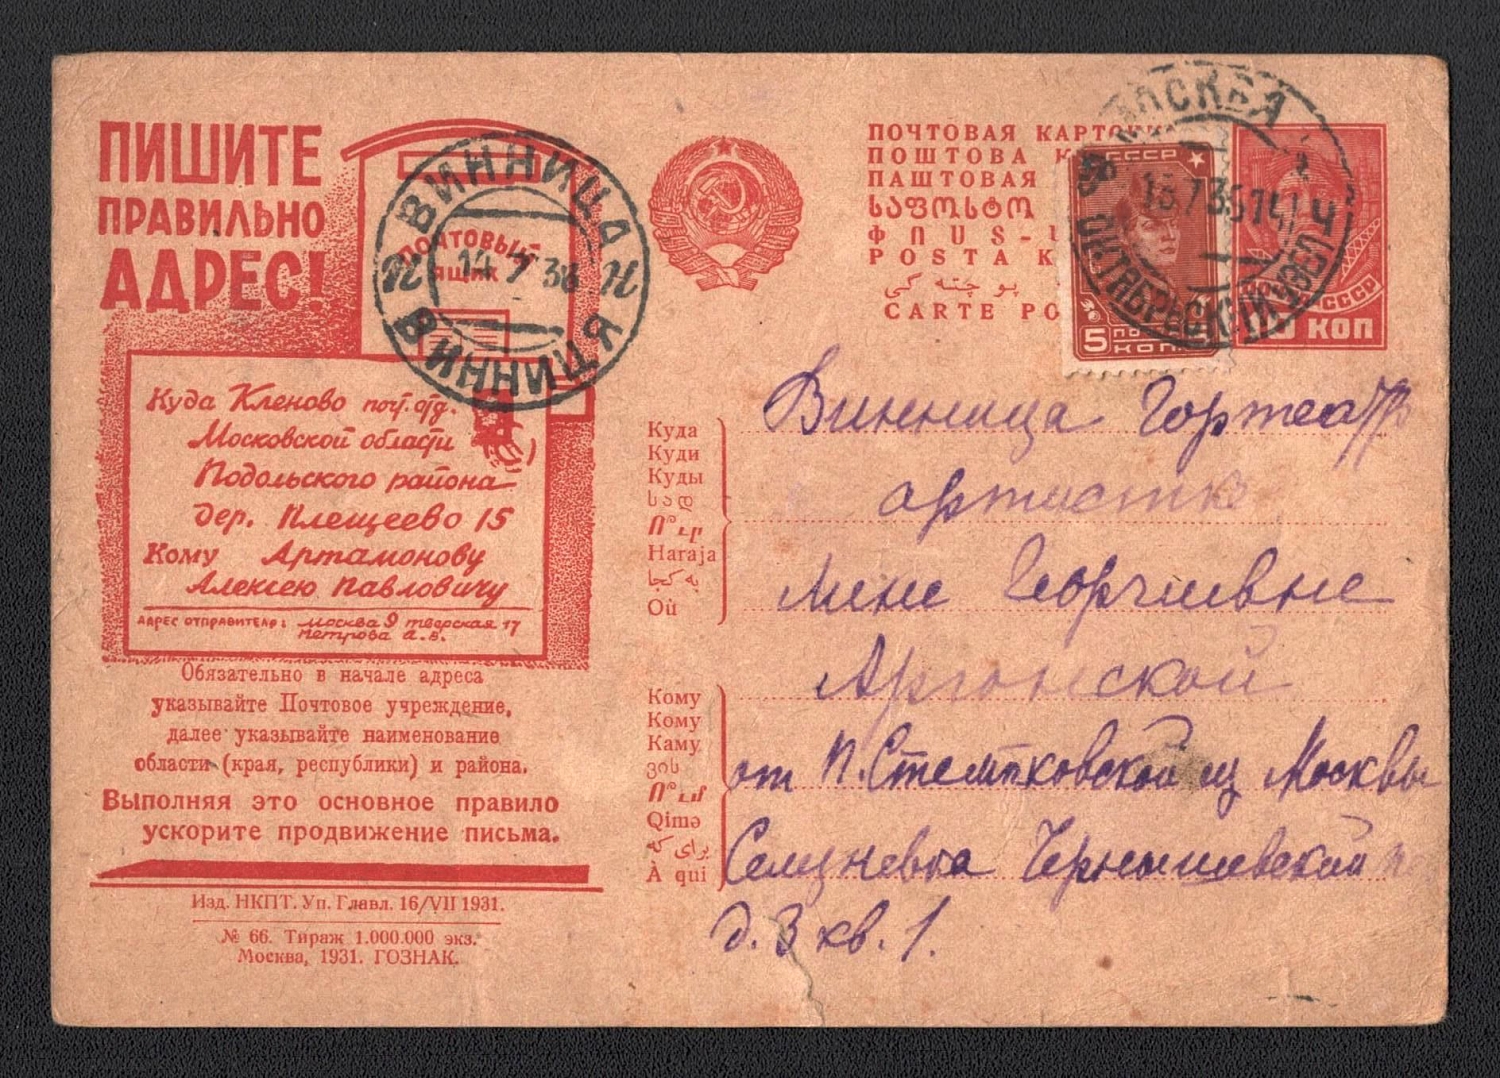 ПИШИТЕ
ПРАВИЛЬНО
АДРЕС!
ПОЧТОВЫЙ
ЯЩИК
ВИННИЦА
14 7 36
ВІННИЦЯ
Куда Кленово почт. отд.
Московской области
Подольского района
дер. Плещеево 15
Кому Артамонову
Алексею Павловичу
АДРЕС ОТПРАВИТЕЛЯ: МОСКВА 9 ТВЕРСКАЯ 17
ПЕТРОВА А.В.
Обязательно в начале адреса
указывайте Почтовое учреждение,
далее указывайте наименование
области (края, республики) и района.
Выполняя это основное правило
ускорите продвижение письма.
Изд. НКПТ. Уп. Главл. 16/VII 1931.
№ 66. Тираж 1.000.000 экз.
Москва, 1931. ГОЗНАК.
ПОЧТОВАЯ КАРТОЧКА
ПОШТОВА
ПАШТОВАЯ
ᲡᲐᲤᲝᲡᲢᲝ
ՓՈՍՏ-
POSTA K
پوچته کی
CARTE PO
СССР
5 ПОЧТА
КОП
КОП
МОСКВА
Куда
Куди
Куды
სად
Ո՞ւր
Haraja
به کجا
Où
Кому
Кому
Каму
ვის
Ո՞ւմ
Qimə
برای که
À qui
Винница Гортеатр
артистке
Георгиевне
от П. Стемпковской из Москвы
Селезневка Чернышевский
д. 3 кв. 1.